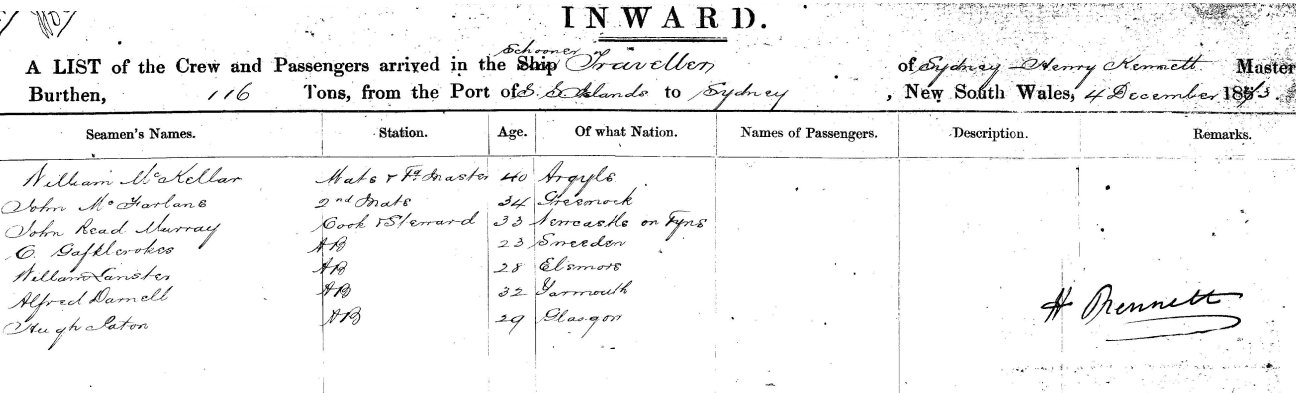 INWARD.
Schooner
A LIST of the Crew and Passengers arrived in the Ship Traveller of Sydney Henry Kennett Master
Burthen, 116 Tons, from the Port of S. S. Islands to Sydney, New South Wales, 4 December 18
Seamen's Names. Station. Age. Of what Nation. Names of Passengers. Description. Remarks.
William McKellar Mate & Master 40 Argyle
John McFarlane 2nd Mate 34 Greenock
John Read Murray Cook & Steward 33 Newcastle on Tyne
C. AB 23 Sweeden
William AB 28 Elsmore
Alfred Darnell AB 32 Yarmouth
Hugh Paton AB 29 Glasgow
H Kennett